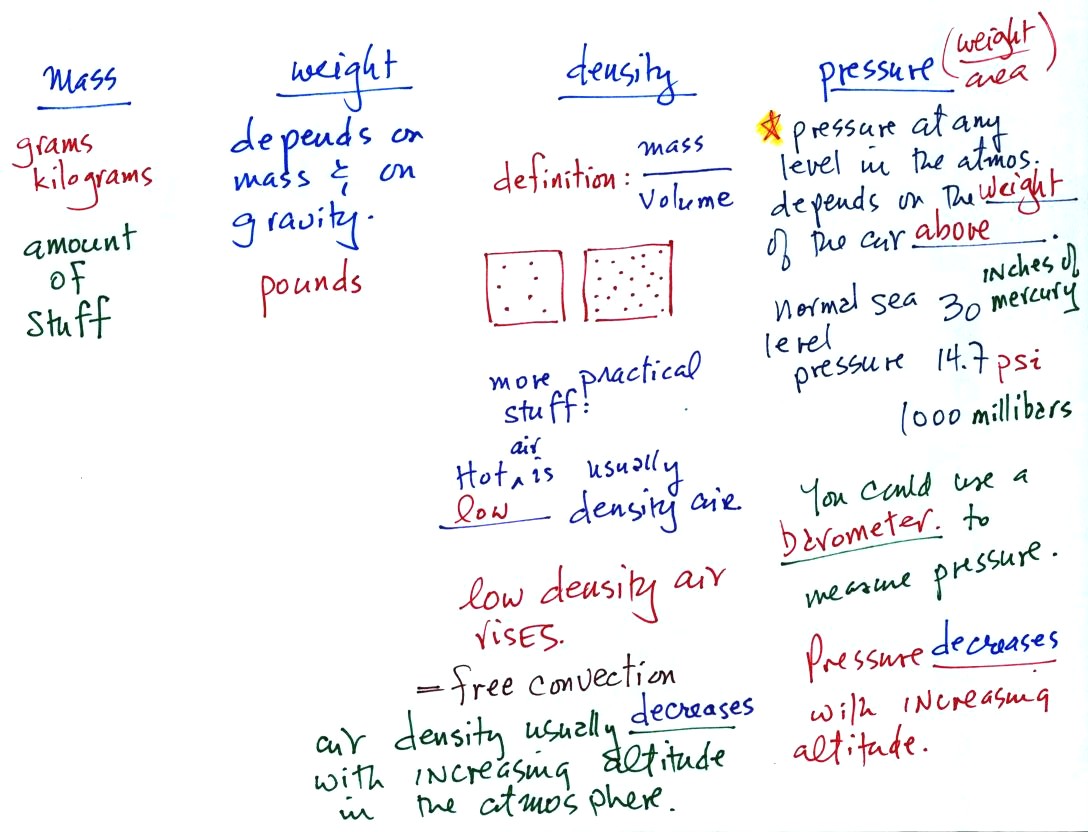 mass
grams
kilograms
amount
of
stuff
weight
depends on
mass & on
gravity.
pounds
density
definition: mass
volume
more practical
stuff:
air
Hot ^ is usually
low density air
low density air
rises.
= free convection
air density usually decreases
with increasing altitude
in the atmosphere.
pressure (weight
area)
pressure at any
level in the atmos.
depends on the weight
of the air above.
inches of
Normal sea 30 mercury
level
pressure 14.7 psi
1000 millibars
You could use a
barometer. to
measure pressure.
Pressure decreases
with increasing
altitude.